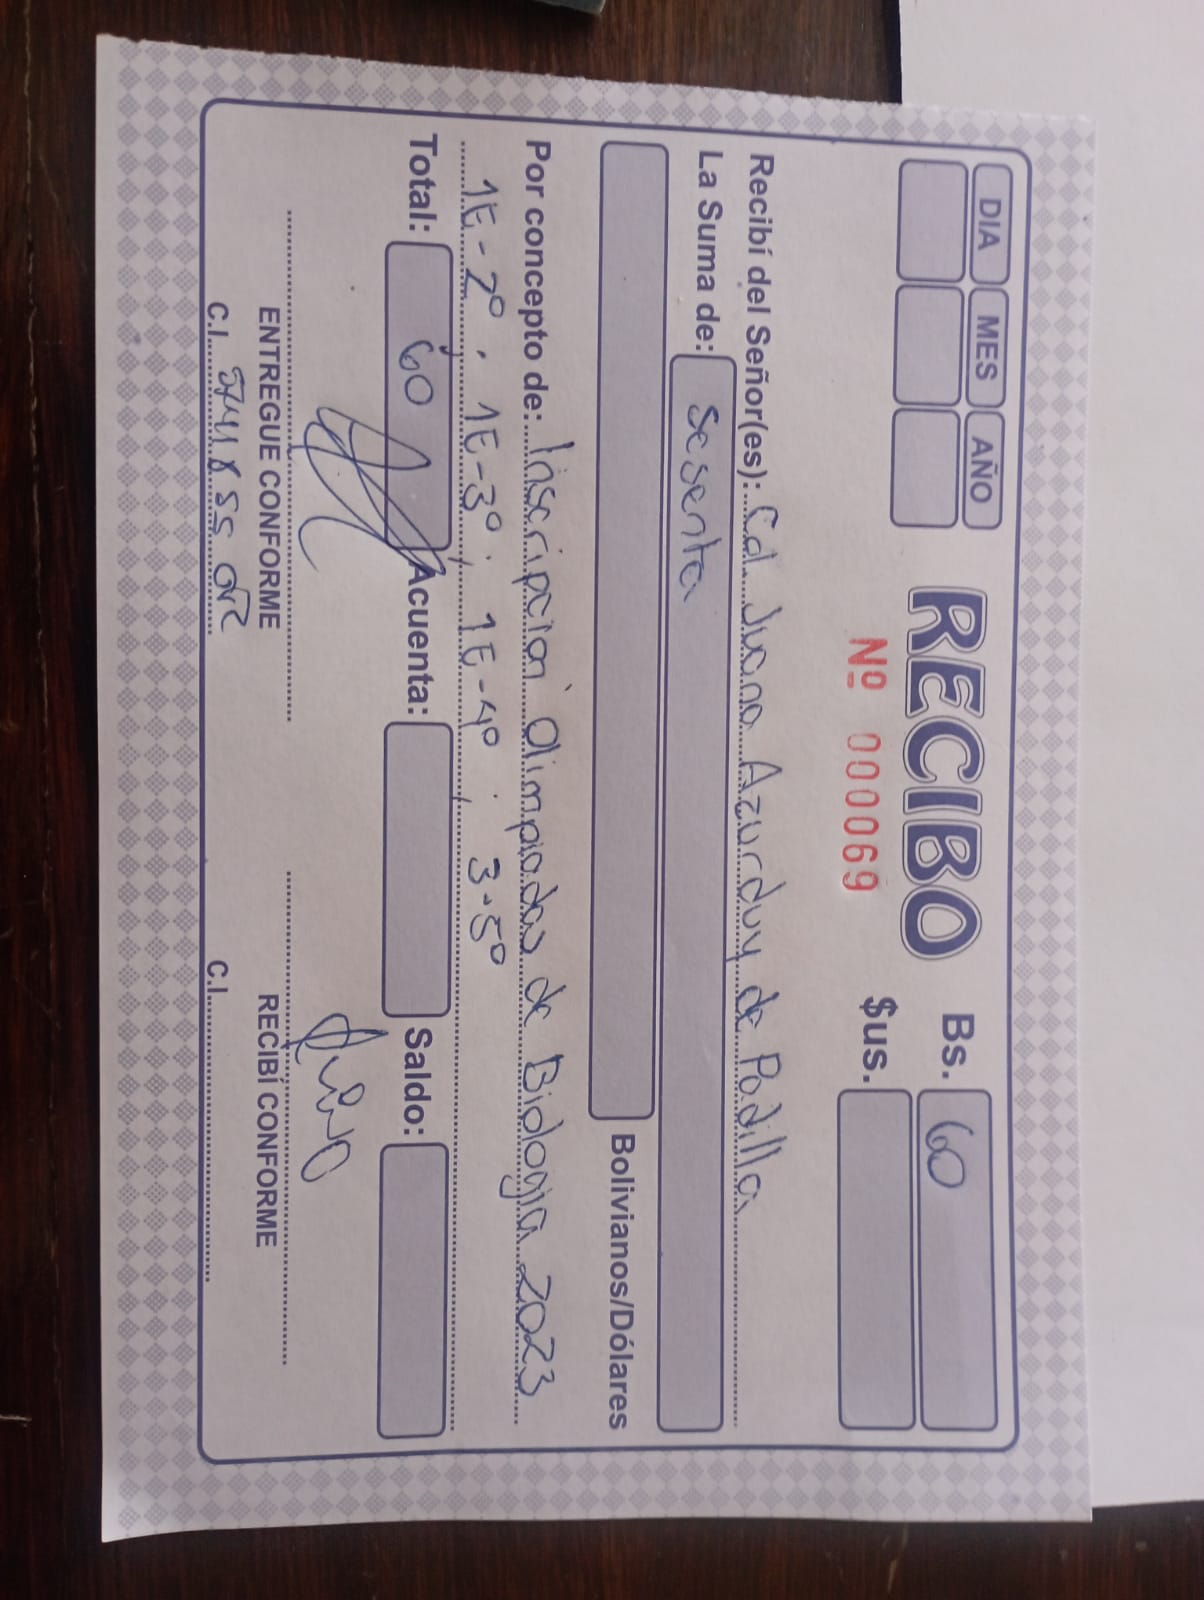 DIA MES AÑO
RECIBO
Nº 000069
Bs. 60
$us.
Recibí del Señor(es): Col. Juana Azurduy de Padilla
La Suma de: Sesenta
Bolivianos/Dólares
Por concepto de: Inscripción Olimpiadas de Biología 2023
1E-2º, 1E-3º, 1E-4º, 3-5º
Total: 60 Acuenta: Saldo:
ENTREGUE CONFORME RECIBÍ CONFORME
C.I. C.I.